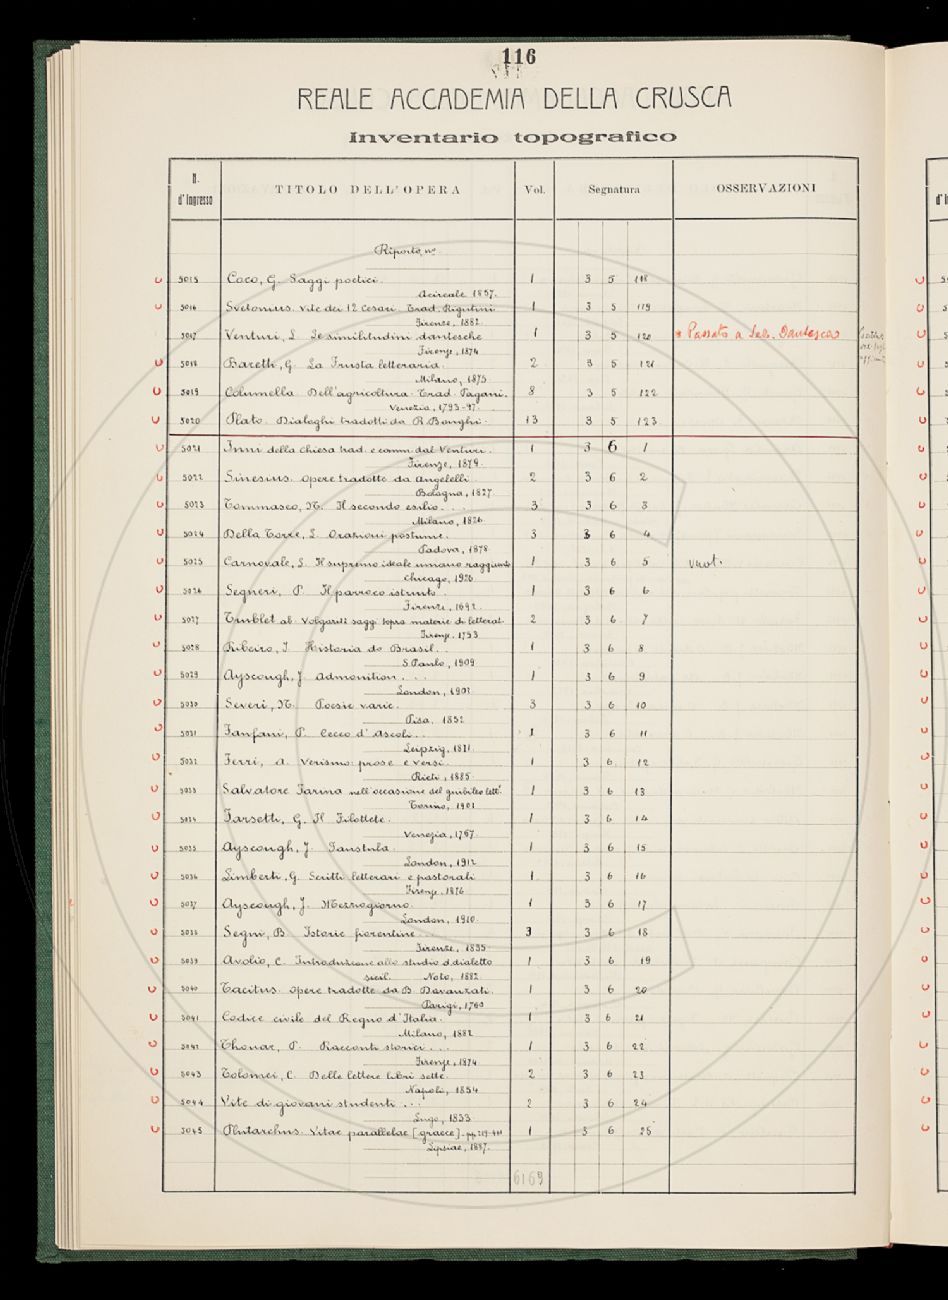 116
REALE ACCADEMIA DELLA CRUSCA
Inventario topografico
N. d'Ingresso TITOLO DELL'OPERA Vol. Segnatura OSSERVAZIONI
Riporto, nº
5015 Coco, G. Saggi poetici. 1 3 5 118
Acireale 1857.
5016 Svetonius. Vite dei 12 Cesari. Trad. Rigutini 1 3 5 119
Firenze, 1882.
5017 Venturi, L. Le similitudini dantesche 1 3 5 120 * Passato a Sal. Dantesca
Firenze, 1874
5018 Baretti, G. La Frusta letteraria. 2 3 5 121
Milano, 1875
5019 Columella Dell'agricoltura. Trad. Pagani. 8 3 5 122
Venezia, 1793-97.
5020 Plato. Dialoghi tradotti da R. Bonghi. 13 3 5 123
5021 Inni della chiesa trad. e comm. dal Venturi. 1 3 6 1
Firenze, 1879.
5022 Sinesius. Opere tradotte da Angelelli 2 3 6 2
Bologna, 1827
5023 Tommaseo, N. Il secondo esilio. . . 3 3 6 3
Milano, 1826
5024 Della Torre, L. Orazioni postume. 3 3 6 4
Padova, 1878.
5025 Carnovale, L. Il supremo ideale umano raggiunto 1 3 6 5
Chicago, 1920.
5026 Segneri, P. Il parroco istruito. 1 3 6 6
Firenze, 1692.
5027 Trublet ab. Volgariti saggi sopra materie di letterat. 2 3 6 7
Firenze, 1753
5028 Ribeiro, J. Historia do Brasil. . . 1 3 6 8
S. Paulo, 1909
5029 Ayscough, J. Admonition. . . 1 3 6 9
London, 1907
5030 Severi, N. Poesie varie. 3 3 6 10
Pisa, 1852
5031 Fanfani, P. Cecco d'Ascoli. . 1 3 6 11
Leipzig, 1871.
5032 Ferri, A. Verismo: prose e versi. 1 3 6 12
Rieti, 1885.
5033 Salvatore Farina nell'occasione del giubileo lett. 1 3 6 13
Torino, 1901
5034 Farsetti, G. Il Filottete. 1 3 6 14
Venezia, 1767.
5035 Ayscough, J. Faustula. 1 3 6 15
London, 1912
5036 Limberti, G. Scritti letterari e pastorali 1 3 6 16
Firenze, 1876
5037 Ayscough, J. Mezzogiorno. 1 3 6 17
London, 1910.
5038 Segni, B. Istorie fiorentine . . . 3 3 6 18
Firenze, 1835
5039 Avolio, C. Introduzione allo studio d. dialetto 1 3 6 19
sicil. Noto, 1882.
5040 Tacitus. Opere tradotte da B. Davanzati. 1 3 6 20
Parigi, 1760
5041 Codice civile del Regno d'Italia. 1 3 6 21
Milano, 1882
5042 Thouar, P. Racconti storici. . . 1 3 6 22
Firenze, 1874
5043 Tolomei, C. Delle lettere libri sette. 2 3 6 23
Napoli, 1854
5044 Vite di giovani studenti . . . 2 3 6 24
Lugo, 1833
5045 Plutarchus. Vitae parallelae [graece]. 1 3 6 25
Lipsiae, 1887.
6169